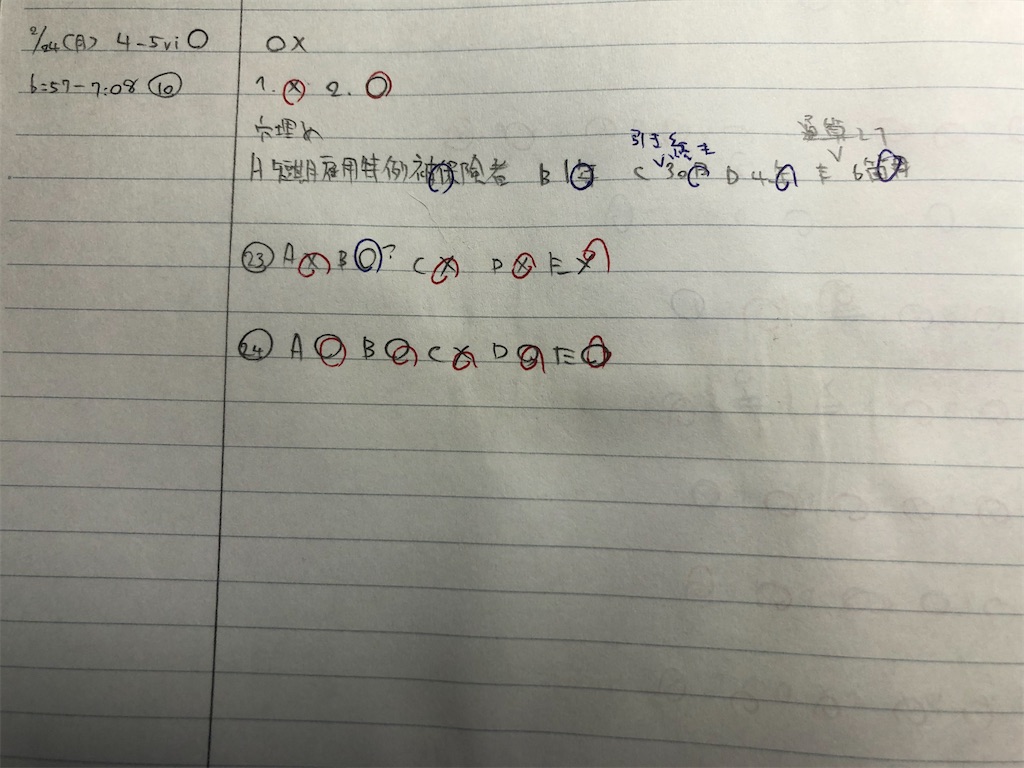 2/24(月) 4-5vi ○
○×
6:57-7:08 ⑩
1. × 2. ○
穴埋め
引き続き
通算して
A 短期雇用特例被保険者 B 1年 C 30日 D 4 E 6箇月
㉓ A × B ○? C × D × E ×
㉔ A ○ B ○ C × D ○ E ○